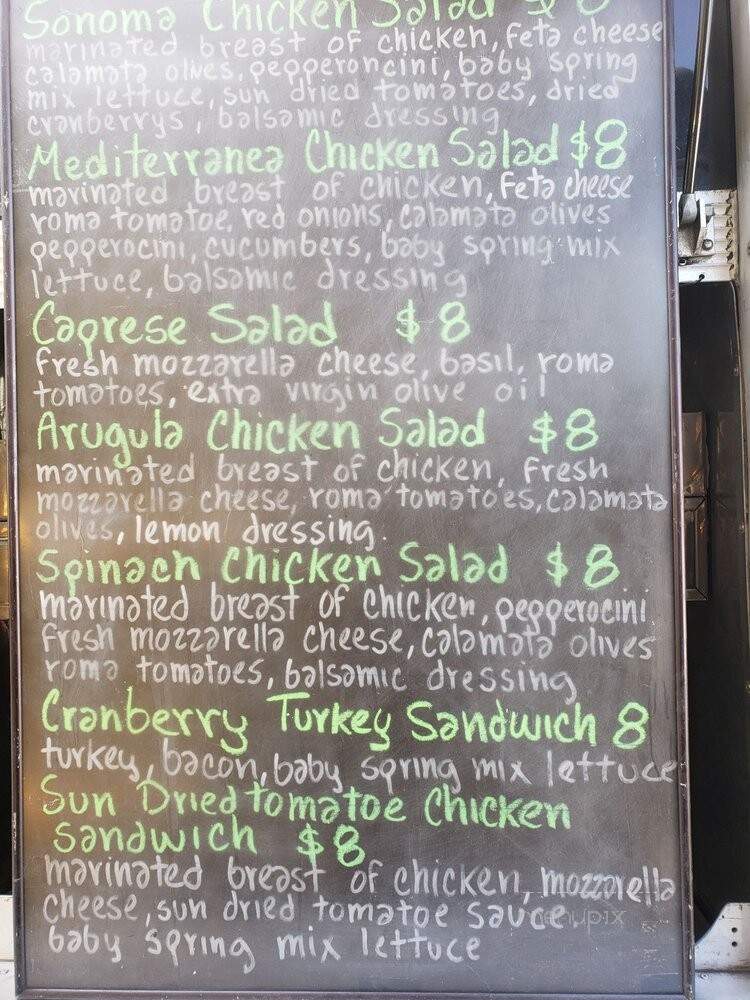 Sonoma Chicken Salad $8
marinated breast of chicken, feta cheese
calamata olives, pepperoncini, baby spring
mix lettuce, sun dried tomatoes, dried
cranberrys, balsamic dressing
Mediterranea Chicken Salad $8
marinated breast of chicken, feta cheese
roma tomatoe, red onions, calamata olives
pepperocini, cucumbers, baby spring mix
lettuce, balsamic dressing
Caprese Salad $8
fresh mozzarella cheese, basil, roma
tomatoes, extra virgin olive oil
Arugula Chicken Salad $8
marinated breast of chicken, fresh
mozzarella cheese, roma tomatoes, calamata
olives, lemon dressing.
Spinach Chicken Salad $8
marinated breast of chicken, pepperocini
fresh mozzarella cheese, calamata olives
roma tomatoes, balsamic dressing
Cranberry Turkey Sandwich 8
turkey, bacon, baby spring mix lettuce
Sun Dried tomatoe Chicken
Sandwich $8
marinated breast of chicken, mozzarella
cheese, sun dried tomatoe sauce
menupix
baby spring mix lettuce